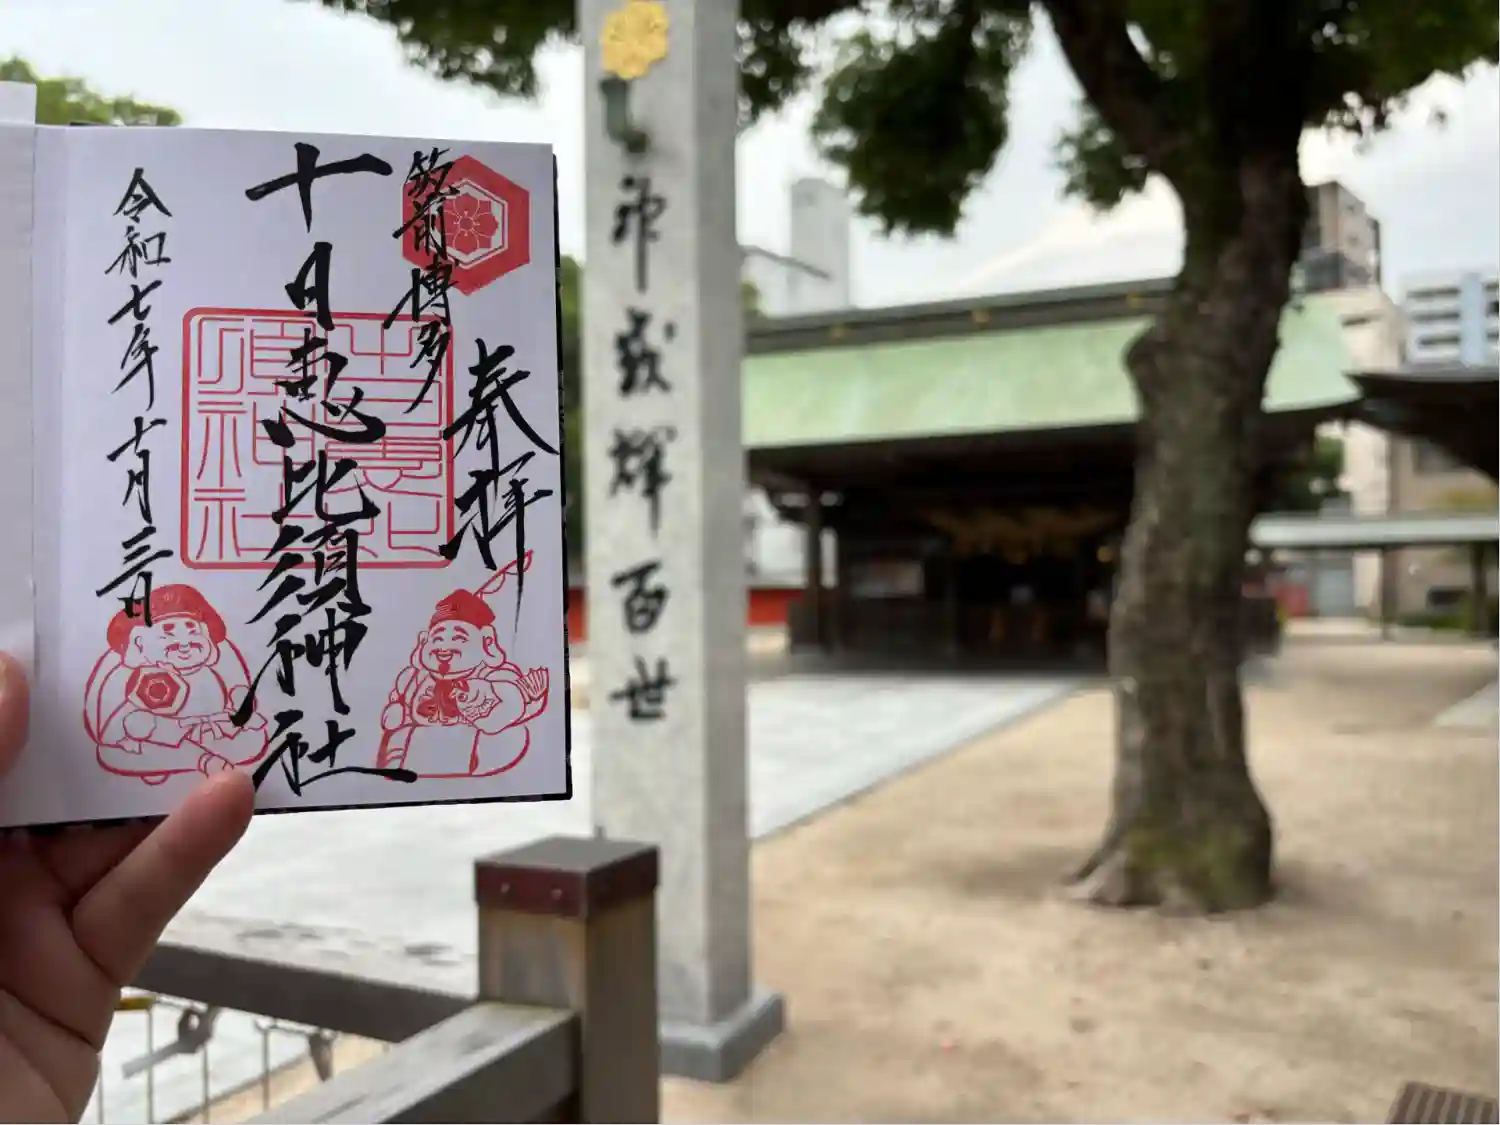 奉拝
筑前博多
十日恵比須神社
令和七年十月三日
十日恵比須神社
威輝百世